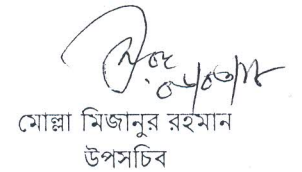 মোল্লা মিজানুর রহমান
উপসচিব